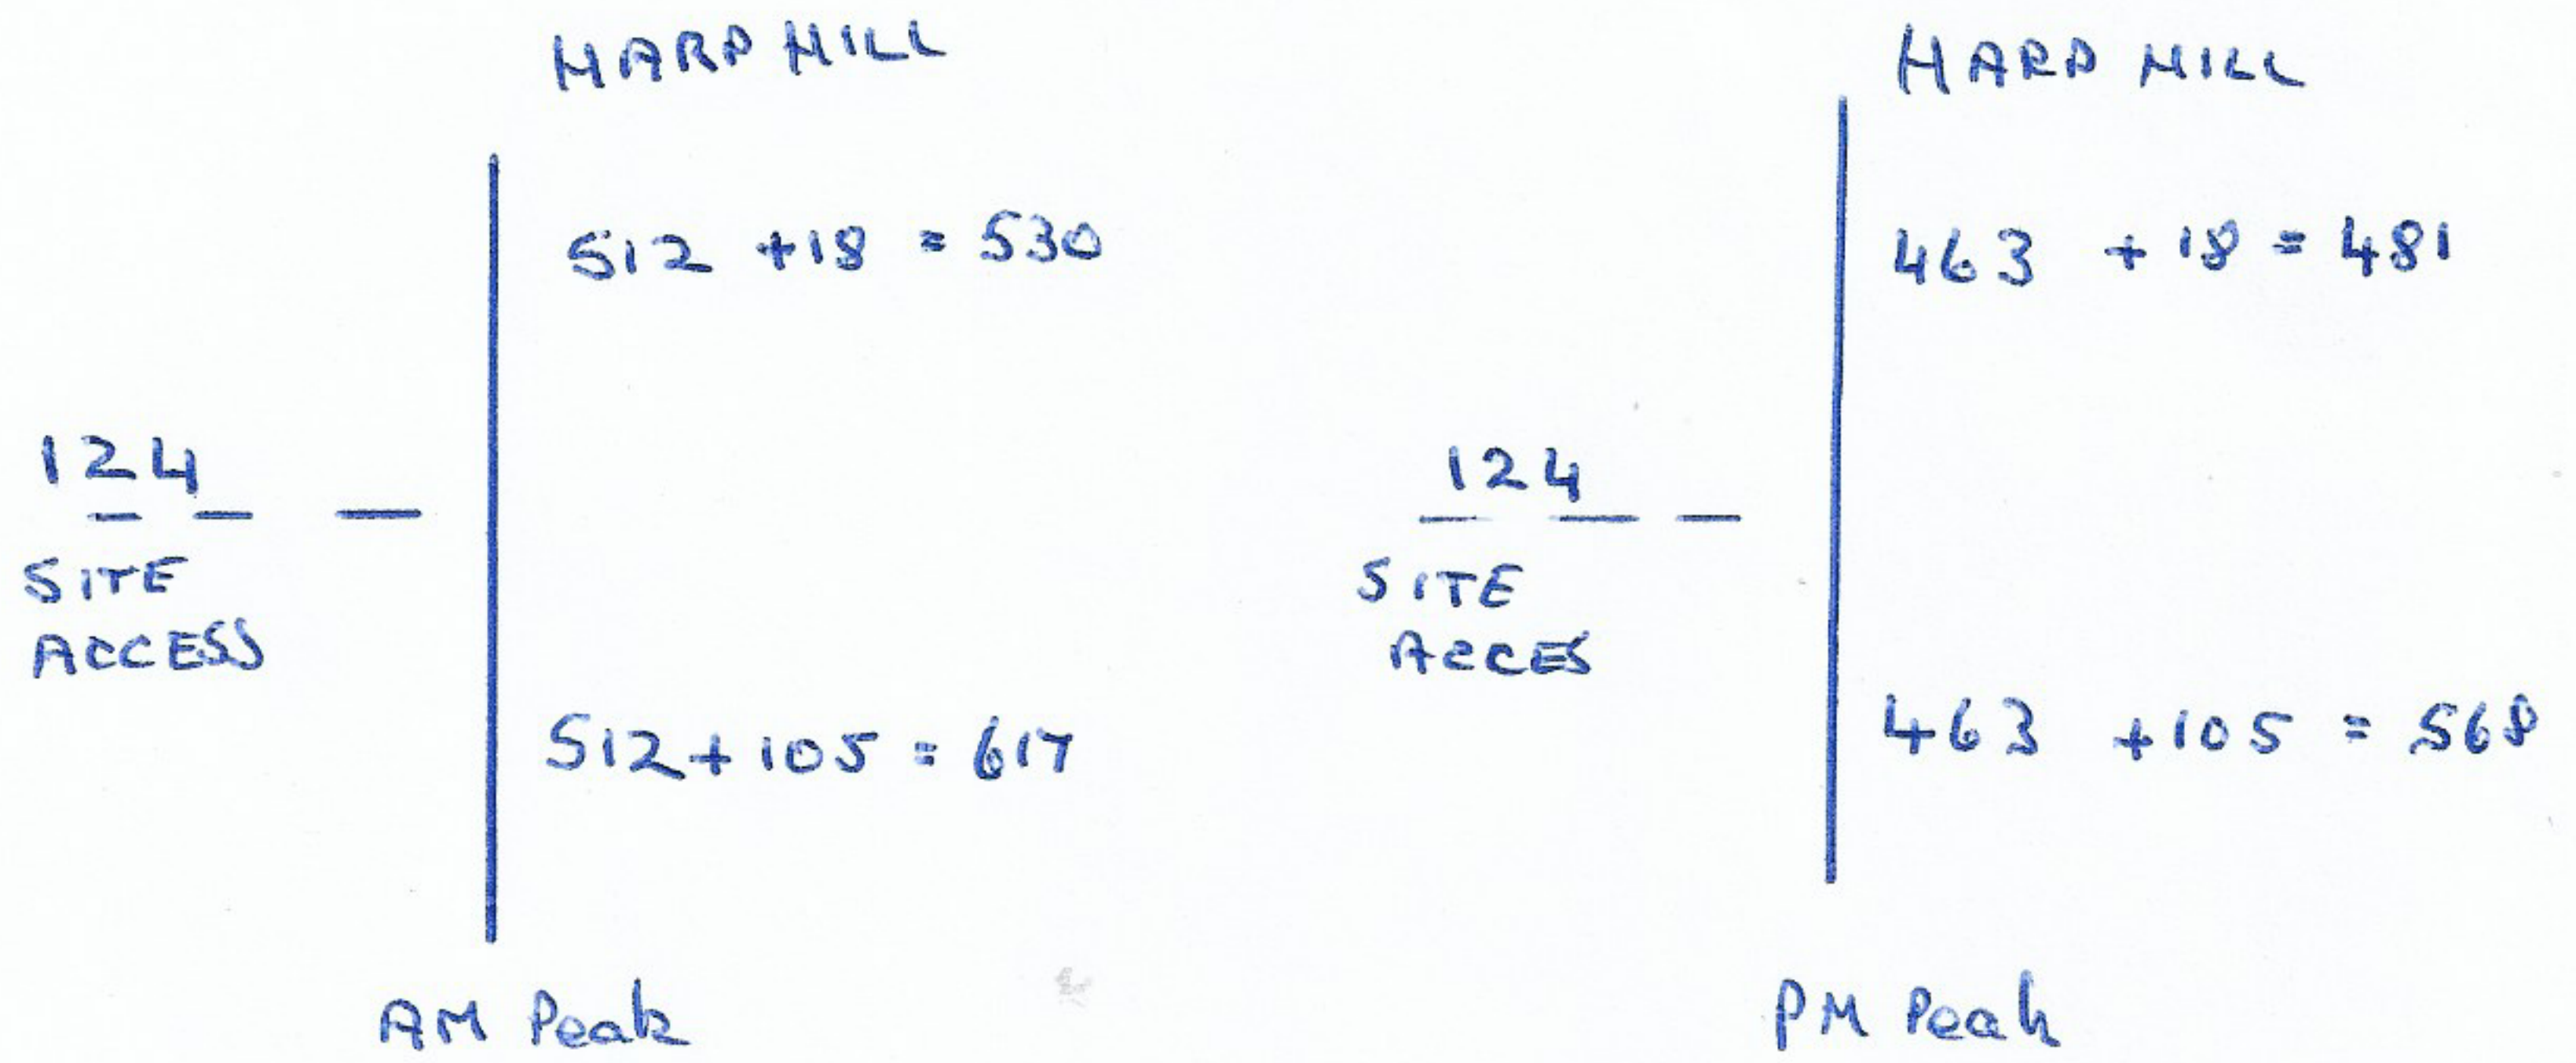 HARP HILL
512 +18 = 530
124
SITE
ACCESS
512 + 105 = 617
AM Peak
HARP HILL
463 +18 = 481
124
SITE
ACCES
463 +105 = 568
PM Peak